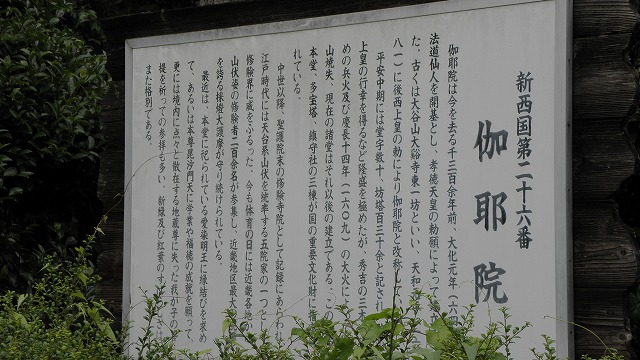 新西国第二十六番
伽耶院
伽耶院は今を去る千三百余年前、大化元年（六四
法道仙人を開基とし、孝徳天皇の勅願によって建
た。古くは大谷山大谿寺東一坊といい、天和元
八一）に後西上皇の勅により伽耶院と改称し
平安中期には堂宇数十、坊塔百三十余と記され
上皇の行幸を得るなど隆盛を極めたが、秀吉の三木
めの兵火及び慶長十四年（一六〇九）の大火に
山焼失、現在の諸堂はそれ以後の建立である。この
本堂、多宝塔、鎮守社の三棟が国の重要文化財に指
れている。
中世以降、聖護院末の修験寺院として記録にあらわ
江戸時代には天谷系山伏を統率する五院家の一つとし
修験界に威をふるった。今も体育の日には近畿各地か
山伏姿の修験者二百余名が参集し、近畿地区最大
を誇る採燈大護摩が守り続けられている。
最近は、本堂に祀られている愛染明王に縁結びを求め
て、あるいは本尊毘沙門天に学業や福徳の成就を願って、
更には境内に点々と散在する地蔵尊に失った我が子の
提を祈っての参拝も多い。新緑及び紅葉の
また格別である。